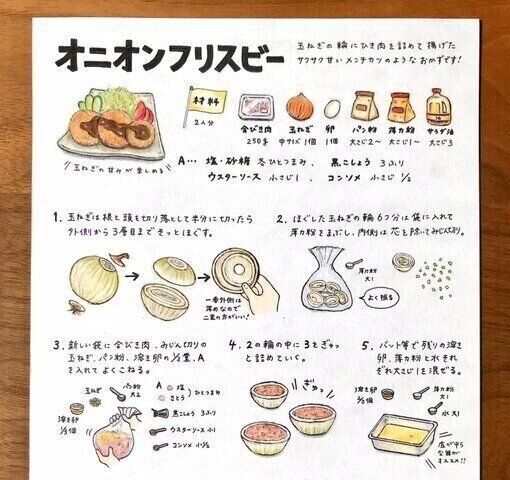 オニオンフリスビー
玉ねぎの輪にひき肉を詰めて揚げた
サクサク甘いメンチカツのようなおかずです!
材料
2人分
合びき肉
250g
玉ねぎ
中サイズ1個
卵
1個
パン粉
大さじ2〜
薄力粉
大さじ1〜
サラダ油
大さじ3
玉ねぎの甘みが楽しめる
A… 塩・砂糖 各ひとつまみ、 黒こしょう 3ふり
ウスターソース 小さじ1、 コンソメ 小さじ1/2
1. 玉ねぎは根と頭を切り落として半分に切ったら
外側から3層目までそっとほぐす。
一番外側は
薄めなので
二重の方がいい!
2. ほぐした玉ねぎの輪6つ分は袋に入れて
薄力粉をまぶし、内側は芯を除いてみじん切り。
薄力粉
大1
よく振る
3. 新しい袋に合びき肉、みじん切りの
玉ねぎ、パン粉、溶き卵の1/3量、A
を入れてよくこねる。
玉ねぎ
パン粉
大2
溶き卵
1/3個
A
塩
さとう
ひとつまみ
黒こしょう 3ふり
ウスターソース 小1
コンソメ 小1/2
4. 2の輪の中に3をぎゅっ
と詰めていく。
ぎゅっ
5. バット等で残りの溶き
卵、薄力粉と水それ
ぞれ大さじ1を混ぜる。
溶き卵
2/3個
薄力粉
大1
水 大1
底が平ら
な器が
オススメ!!